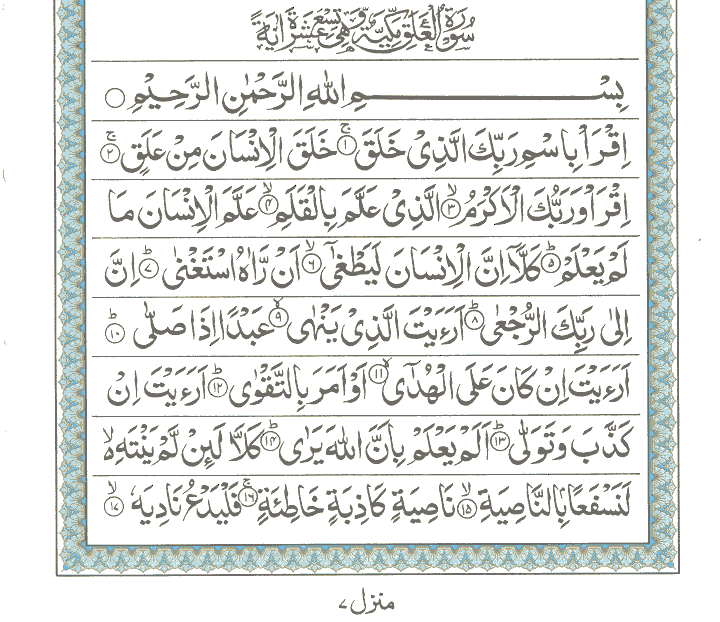 سُوْرَةُ الْعَلَقِ مَكِّيَّةٌ وَّهِيَ تِسْعَ عَشْرَةَ اٰيَةً
بِسْمِ اللّٰهِ الرَّحْمٰنِ الرَّحِيْمِ ○
اِقْرَاْ بِاسْمِ رَبِّكَ الَّذِيْ خَلَقَ ۚ﴿۱﴾ خَلَقَ الْاِنْسَانَ مِنْ عَلَقٍ ۚ﴿۲﴾
اِقْرَاْ وَرَبُّكَ الْاَكْرَمُ ۙ﴿۳﴾ الَّذِيْ عَلَّمَ بِالْقَلَمِ ۙ﴿۴﴾ عَلَّمَ الْاِنْسَانَ مَا
لَمْ يَعْلَمْ ؕ﴿۵﴾ كَلَّاۤ اِنَّ الْاِنْسَانَ لَيَطْغٰۤى ۙ﴿۶﴾ اَنْ رَّاٰهُ اسْتَغْنٰى ؕ﴿۷﴾ اِنَّ
اِلٰى رَبِّكَ الرُّجْعٰى ؕ﴿۸﴾ اَرَءَيْتَ الَّذِيْ يَنْهٰى ۙ﴿۹﴾ عَبْدًا اِذَا صَلّٰى ؕ﴿۱۰﴾
اَرَءَيْتَ اِنْ كَانَ عَلَى الْهُدٰۤى ۙ﴿۱۱﴾ اَوْ اَمَرَ بِالتَّقْوٰى ؕ﴿۱۲﴾ اَرَءَيْتَ اِنْ
كَذَّبَ وَتَوَلّٰى ؕ﴿۱۳﴾ اَلَمْ يَعْلَمْ بِاَنَّ اللّٰهَ يَرٰى ؕ﴿۱۴﴾ كَلَّا لَئِنْ لَّمْ يَنْتَهِ ۙ۬
لَنَسْفَعًۢا بِالنَّاصِيَةِ ۙ﴿۱۵﴾ نَاصِيَةٍ كَاذِبَةٍ خَاطِئَةٍ ۚ﴿۱۶﴾ فَلْيَدْعُ نَادِيَهٗ ۙ﴿۱۷﴾
منزل ۷